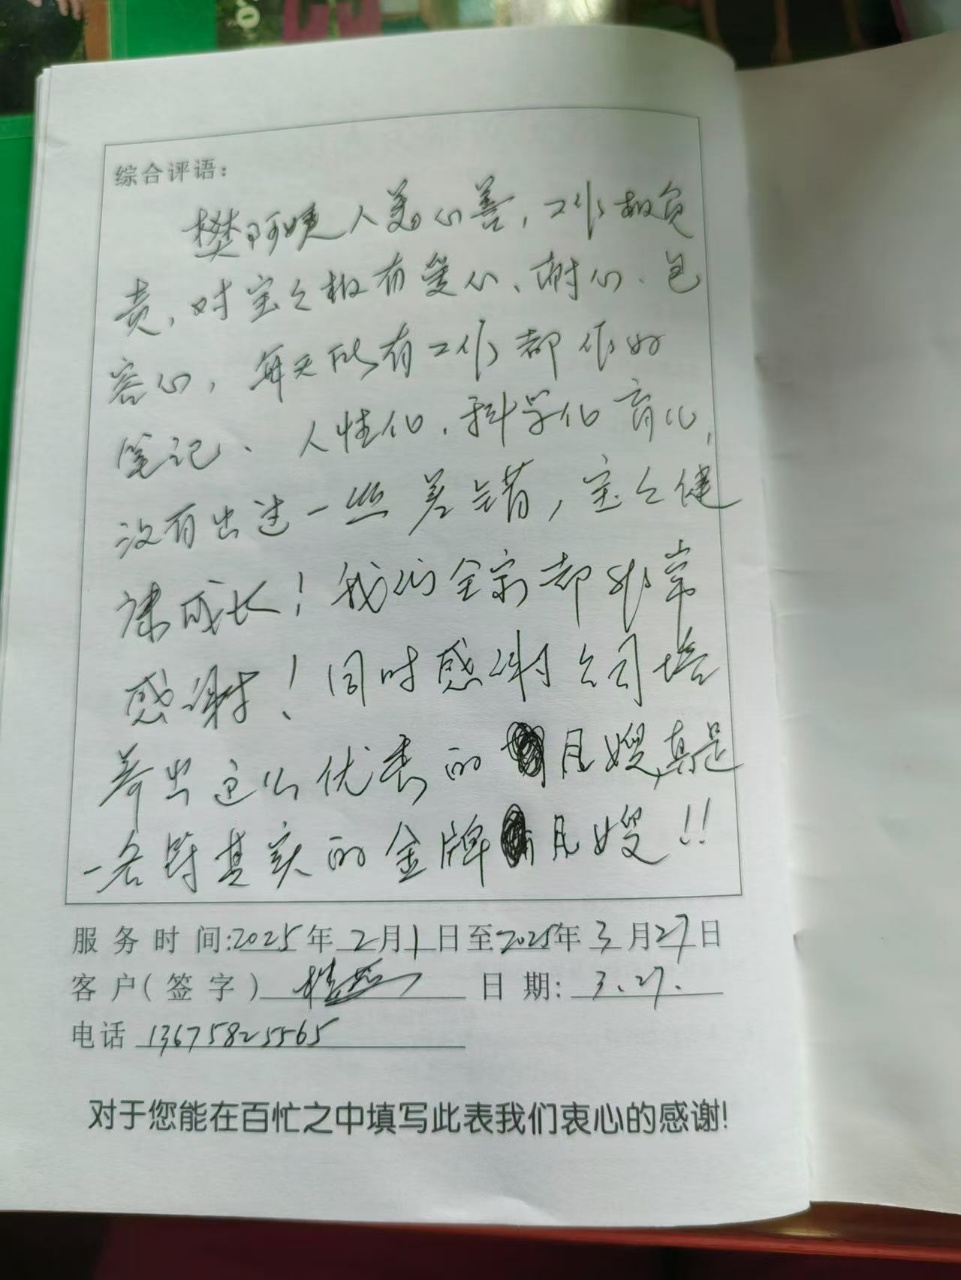 综合评语：
樊阿姨人美心善，工作极负
责，对宝宝极有爱心、耐心、包
容心，每天所有工作都作好
笔记、人性化，科学化育儿，
没有出过一丝差错，宝宝健
康成长！我们全家都非常
感谢！同时感谢公司培
养出这么优秀的月嫂，真是
一名符其实的金牌月嫂！！
服务时间:2025年2月1日至2025年3月27日
客户(签字) 日期:3.27.
电话 13675825565
对于您能在百忙之中填写此表我们衷心的感谢!